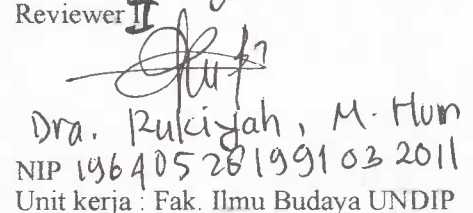 Reviewer II
Dra. Rukiyah, M. Hum
NIP 196405261991032011
Unit kerja : Fak. Ilmu Budaya UNDIP